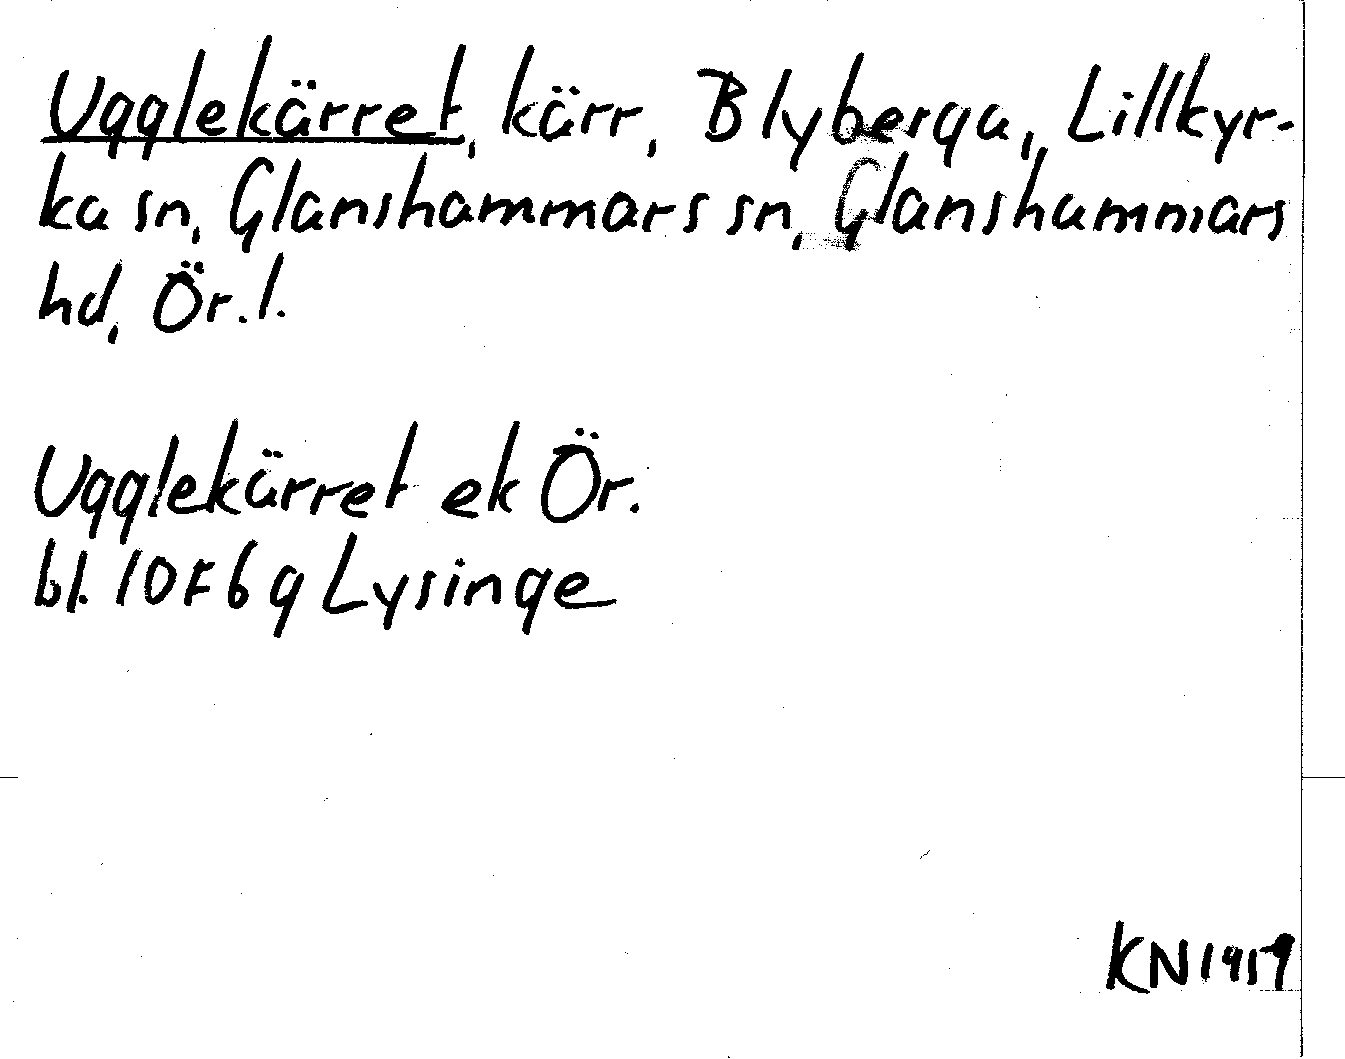 Ugglekärret, kärr, Blyberga, Lillkyr-
ka sn, Glanshammars sn, Glanshammars
hd, Ör. l.
Ugglekärret ek Ör.
bl. 10F6g Lysinge
KN 1959